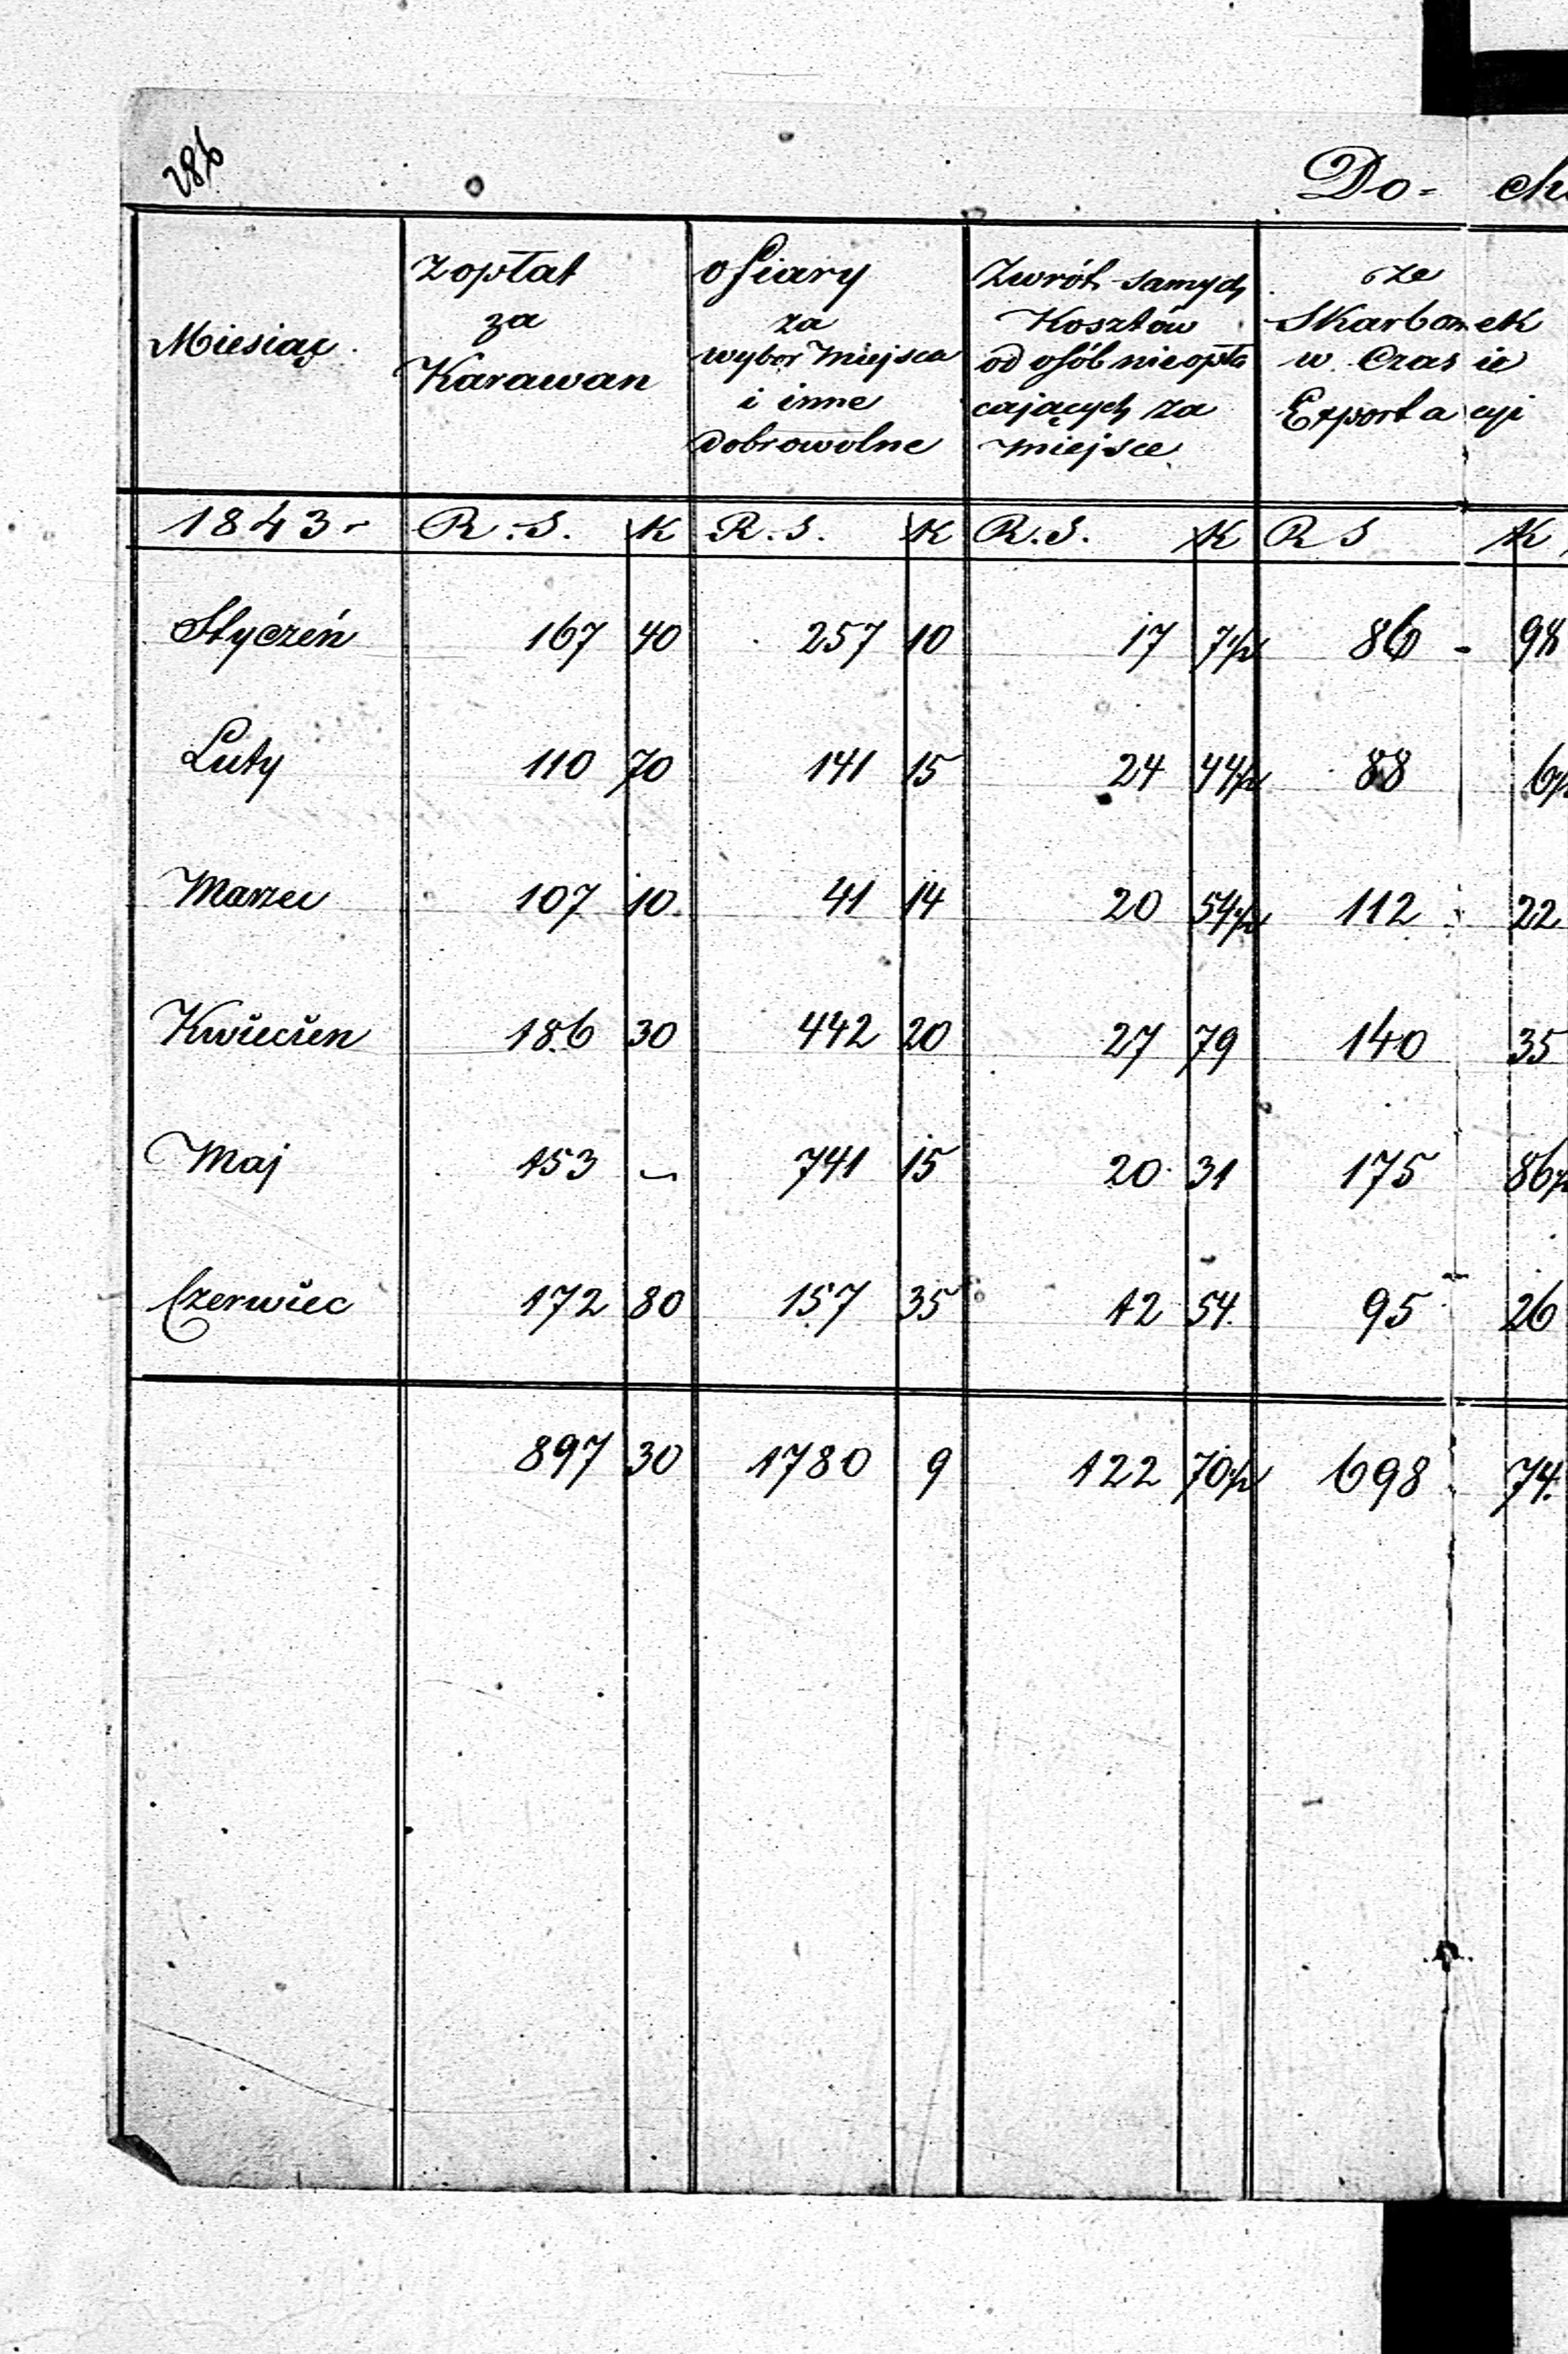 286
Do- ch
Miesiąc
z opłat
za
Karawan
ofiary
za
wybor miejsca
i inne
dobrowolne
Zwrót samych
Kosztów
od osób nieopła
cających za
miejsce
ze
Skarbonek
w Czasie
Exportacyi
1843 - R. S. K R. S. K R. S. K R S K
Styczeń 167 40 257 10 17 7½ 86 - 98
Luty 110 70 141 15 24 44½ 88 6½
Marzec 107 10 41 14 20 54½ 112 22
Kwiecien 186 30 442 20 27 79 140 35
Maj 153 - 741 15 20 31 175 86½
Czerwiec 172 80 157 35 12 54. 95 26
897 30 1780 9 122 70½ 698 74.